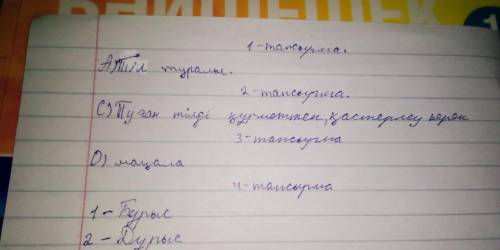 БӘЙШЕШЕК
1
1-тапсырма.
А) Тіл туралы.
2-тапсырма.
С) Туған тілді құрметтеп, қастерлеу керек
3-тапсырма
D) мақала
4-тапсырма
1 - Бұрыс
2 - Дұрыс